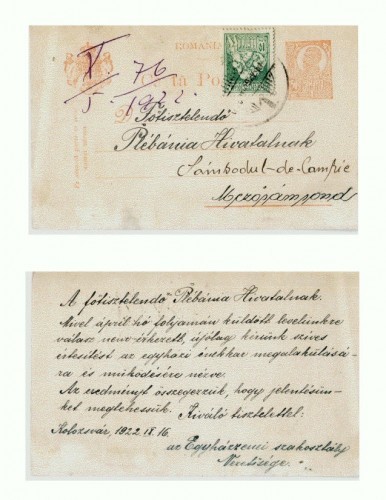 ROMANIA
Carta Po
V. 76
5. 1922.
Főtisztelendő
Plébánia Hivatalnak
Sâmbodul-de-Campie
Mezőzsámbond
A főtisztelendő Plébánia Hivatalnak.
Mivel április hó folyamán küldött levelünkre
válasz nem érkezett, újólag kérünk szives
értesitést az egyházi énekkar megalakulásá-
ra és működésére nézve.
Az eredményt összegezzük, hogy jelentésün-
ket megtehessük. Kiváló tisztelettel:
Kolozsvár, 1922. IX. 16.
az Egyházzenei szakosztály